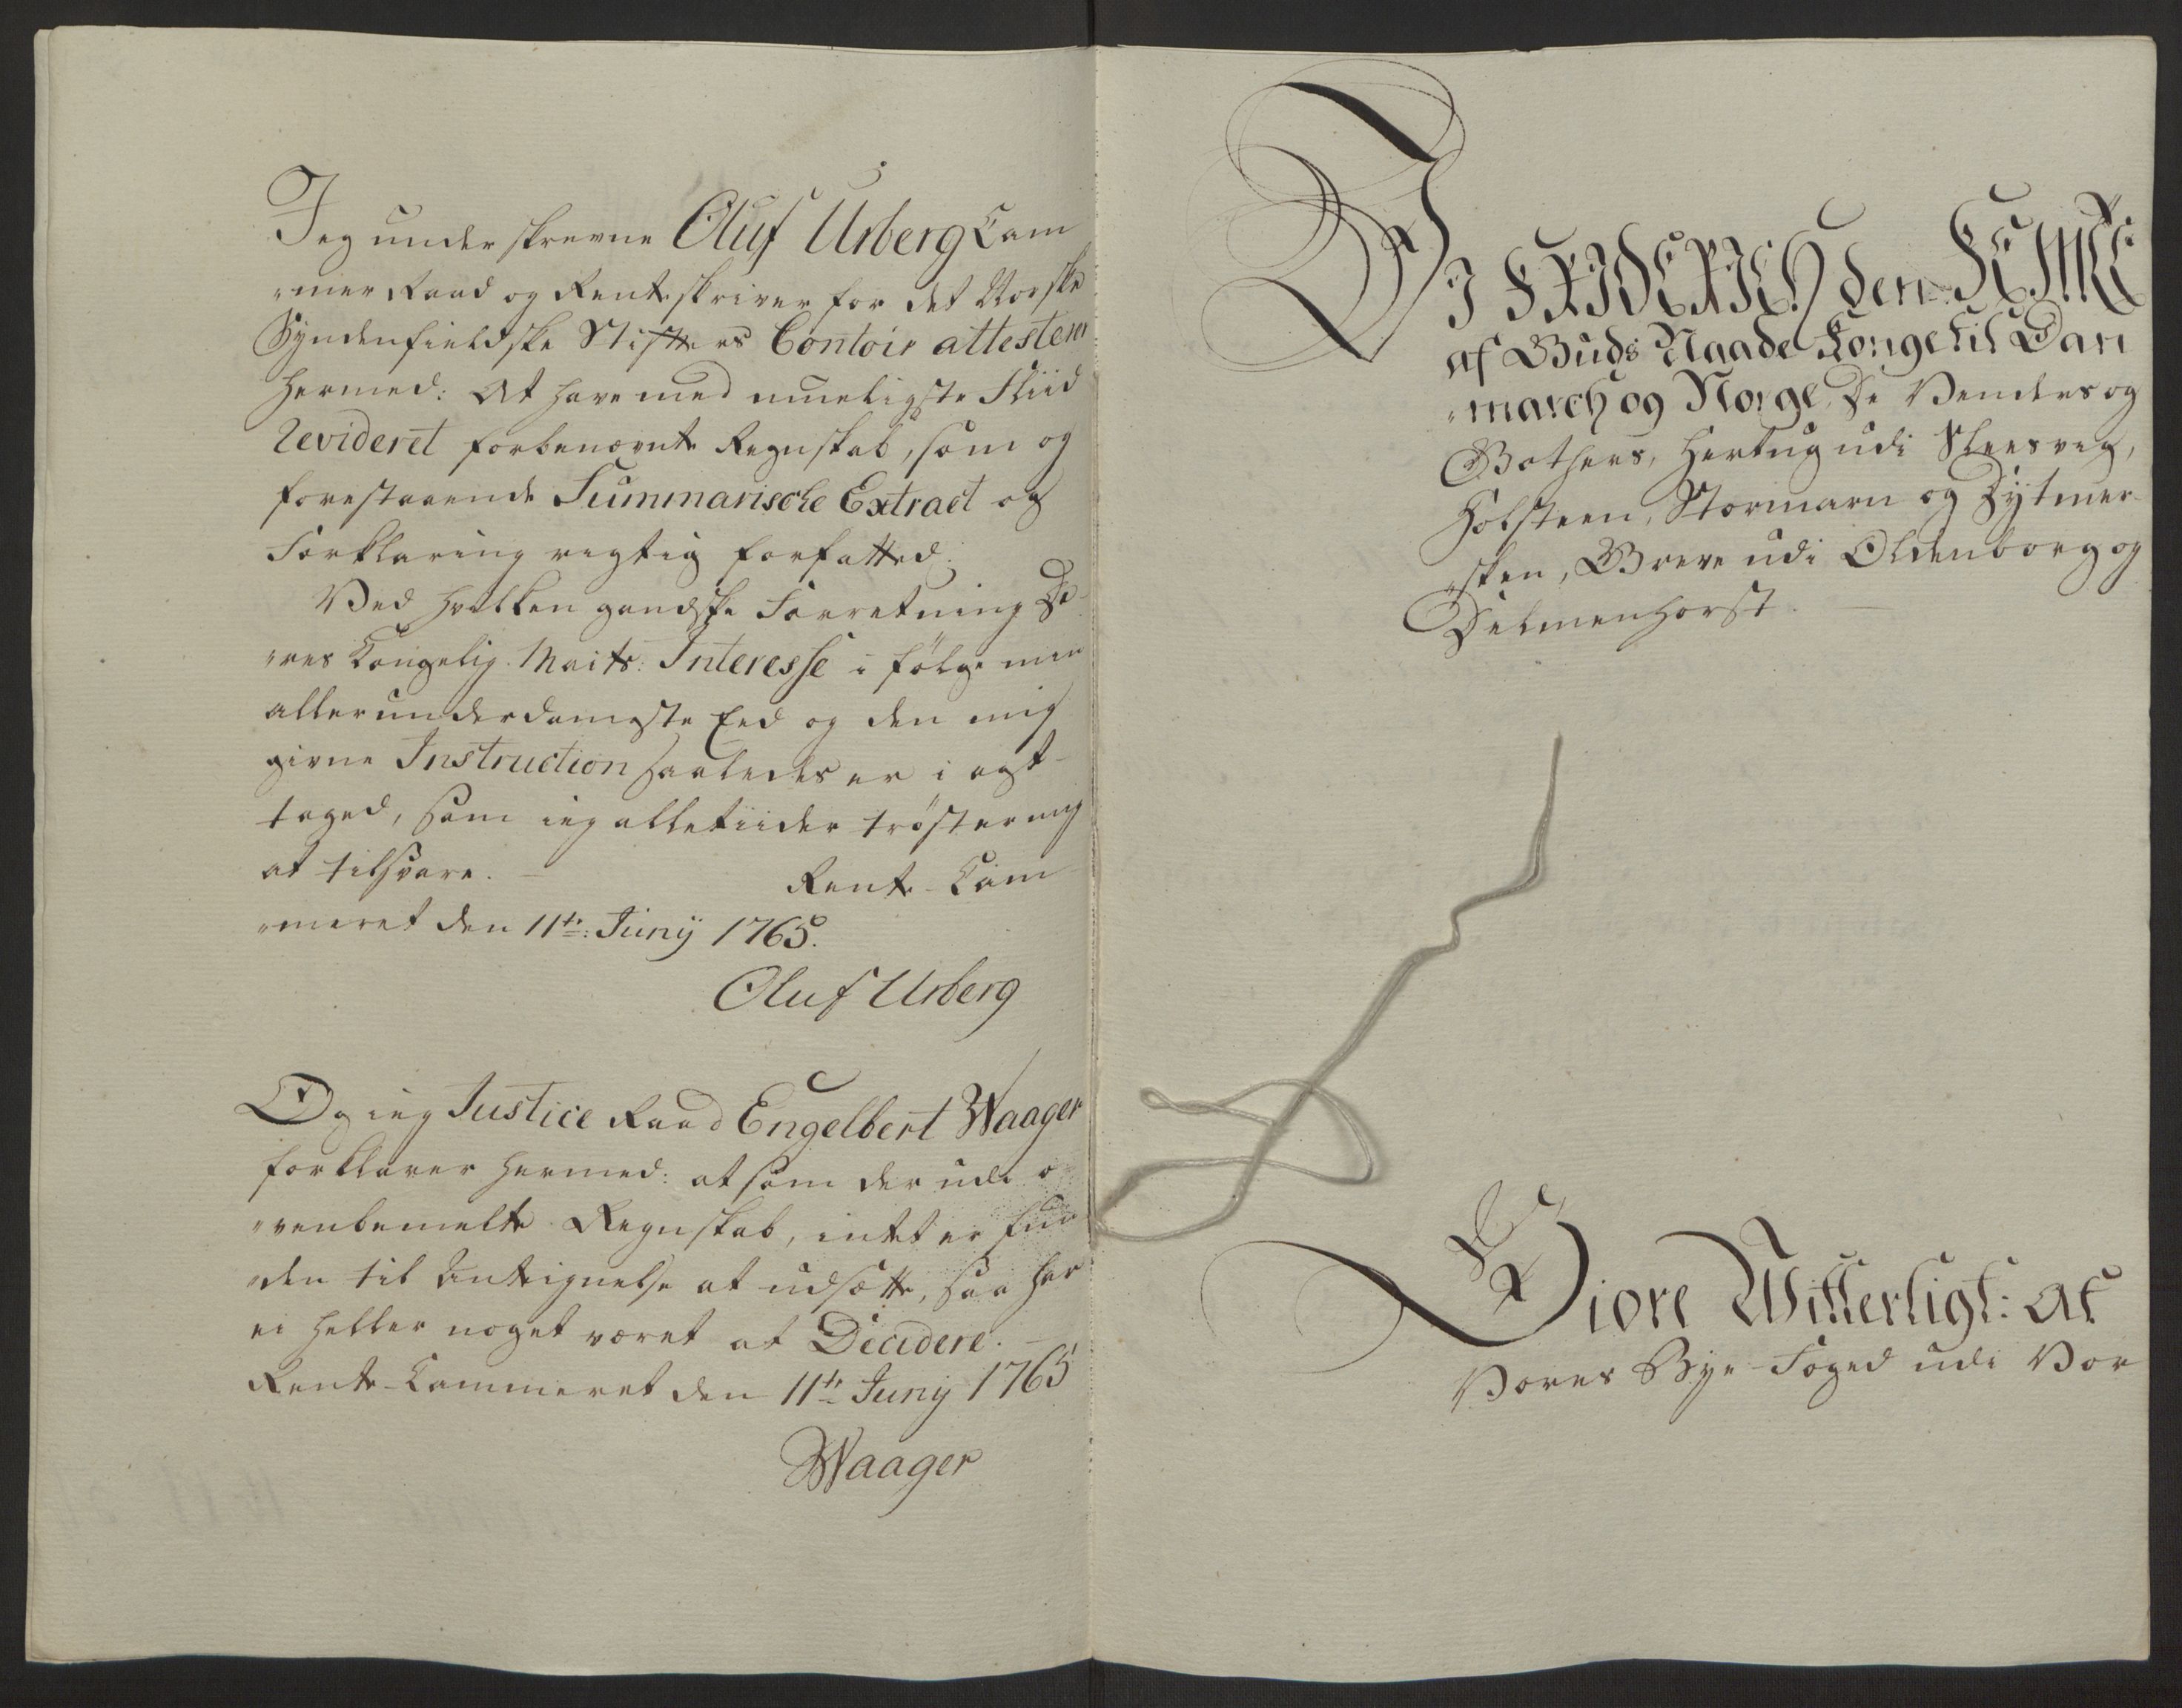 Jeg underskrevne Oluf Urberg Cam
„mer Raad og Renteskriver for det Norske
Syndenfieldske Stifters Contoir attesterer
hermed: At have med mueligste Fliid
Revideret forbenævnte Regnskab, som og
forestaaende Summarische Extract og
Forklaring rigtig forfatted.
Ved hvilken gandske Forretning De
„res Kongelig. Maits: Interesse i følge min
allerunderdanigste Eed og den mig
givne Instruction saaledes er i agt
taged, som ieg alletiider trøster mig
at tilsvare. Rente-Cam
„meret den 11te: Junij 1765.
Oluf Urberg
Og ieg Justice Raad Engelbert Waager
forklarer hermed: at som der udi o
„venbemelte Regnskab, intet er fun
„den til Antegnelse at udsætte, saa har
ei heller noget været at Decidere.
Rente-Cammeret den 11te Junij 1765
Waager
VJ FRIDERICH den FEMTE
af Guds Naade Konge til Dan
„march og Norge, De Venders og
Gothers, Hertug udi Sleesvig,
Holsteen, Stormarn og Dytmer
„sken, Greve udi Oldenborg og
Delmenhorst.
Giøre Witterligt: At
Vores Bye-Foged udi Vor